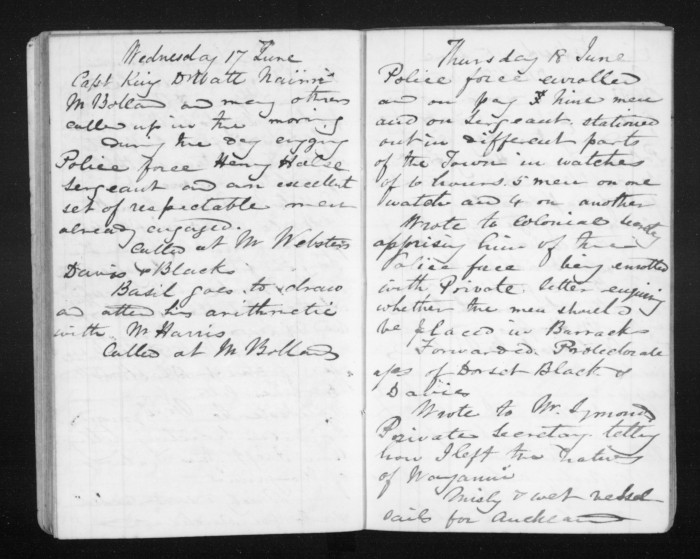 Wednesday 17 June
Capt King D Watt Nairn
Mr Bolland and many others
called up in the morning
During the day engaging
Police force Henry Halse
Sergeant and an excellent
set of respectable men
already engaged.
Called at Mr Websters
Davis & Blacks
Basil goes to draw
and attend his arithmetic
with Mr Harris
Called at Mr Bollands
Thursday 18 June
Police force enrolled
and on pay nine men
and on Sergeant. stationed
out in different parts
of the Town in watches
of 6 hours. 5 men on one
watch and 4 on another
Wrote to Colonial Secrty
apprising him of the
Police force being enrolled
with Private letter enquiring
whether the men should
be placed in Barracks
Forwarded. Protectorate
of Dorset Black &
Davies
Wrote to Mr. Symonds
Private Secretary telling
how I left the natives
of Wanganui
Misty & wet vessel
sails for Auckland